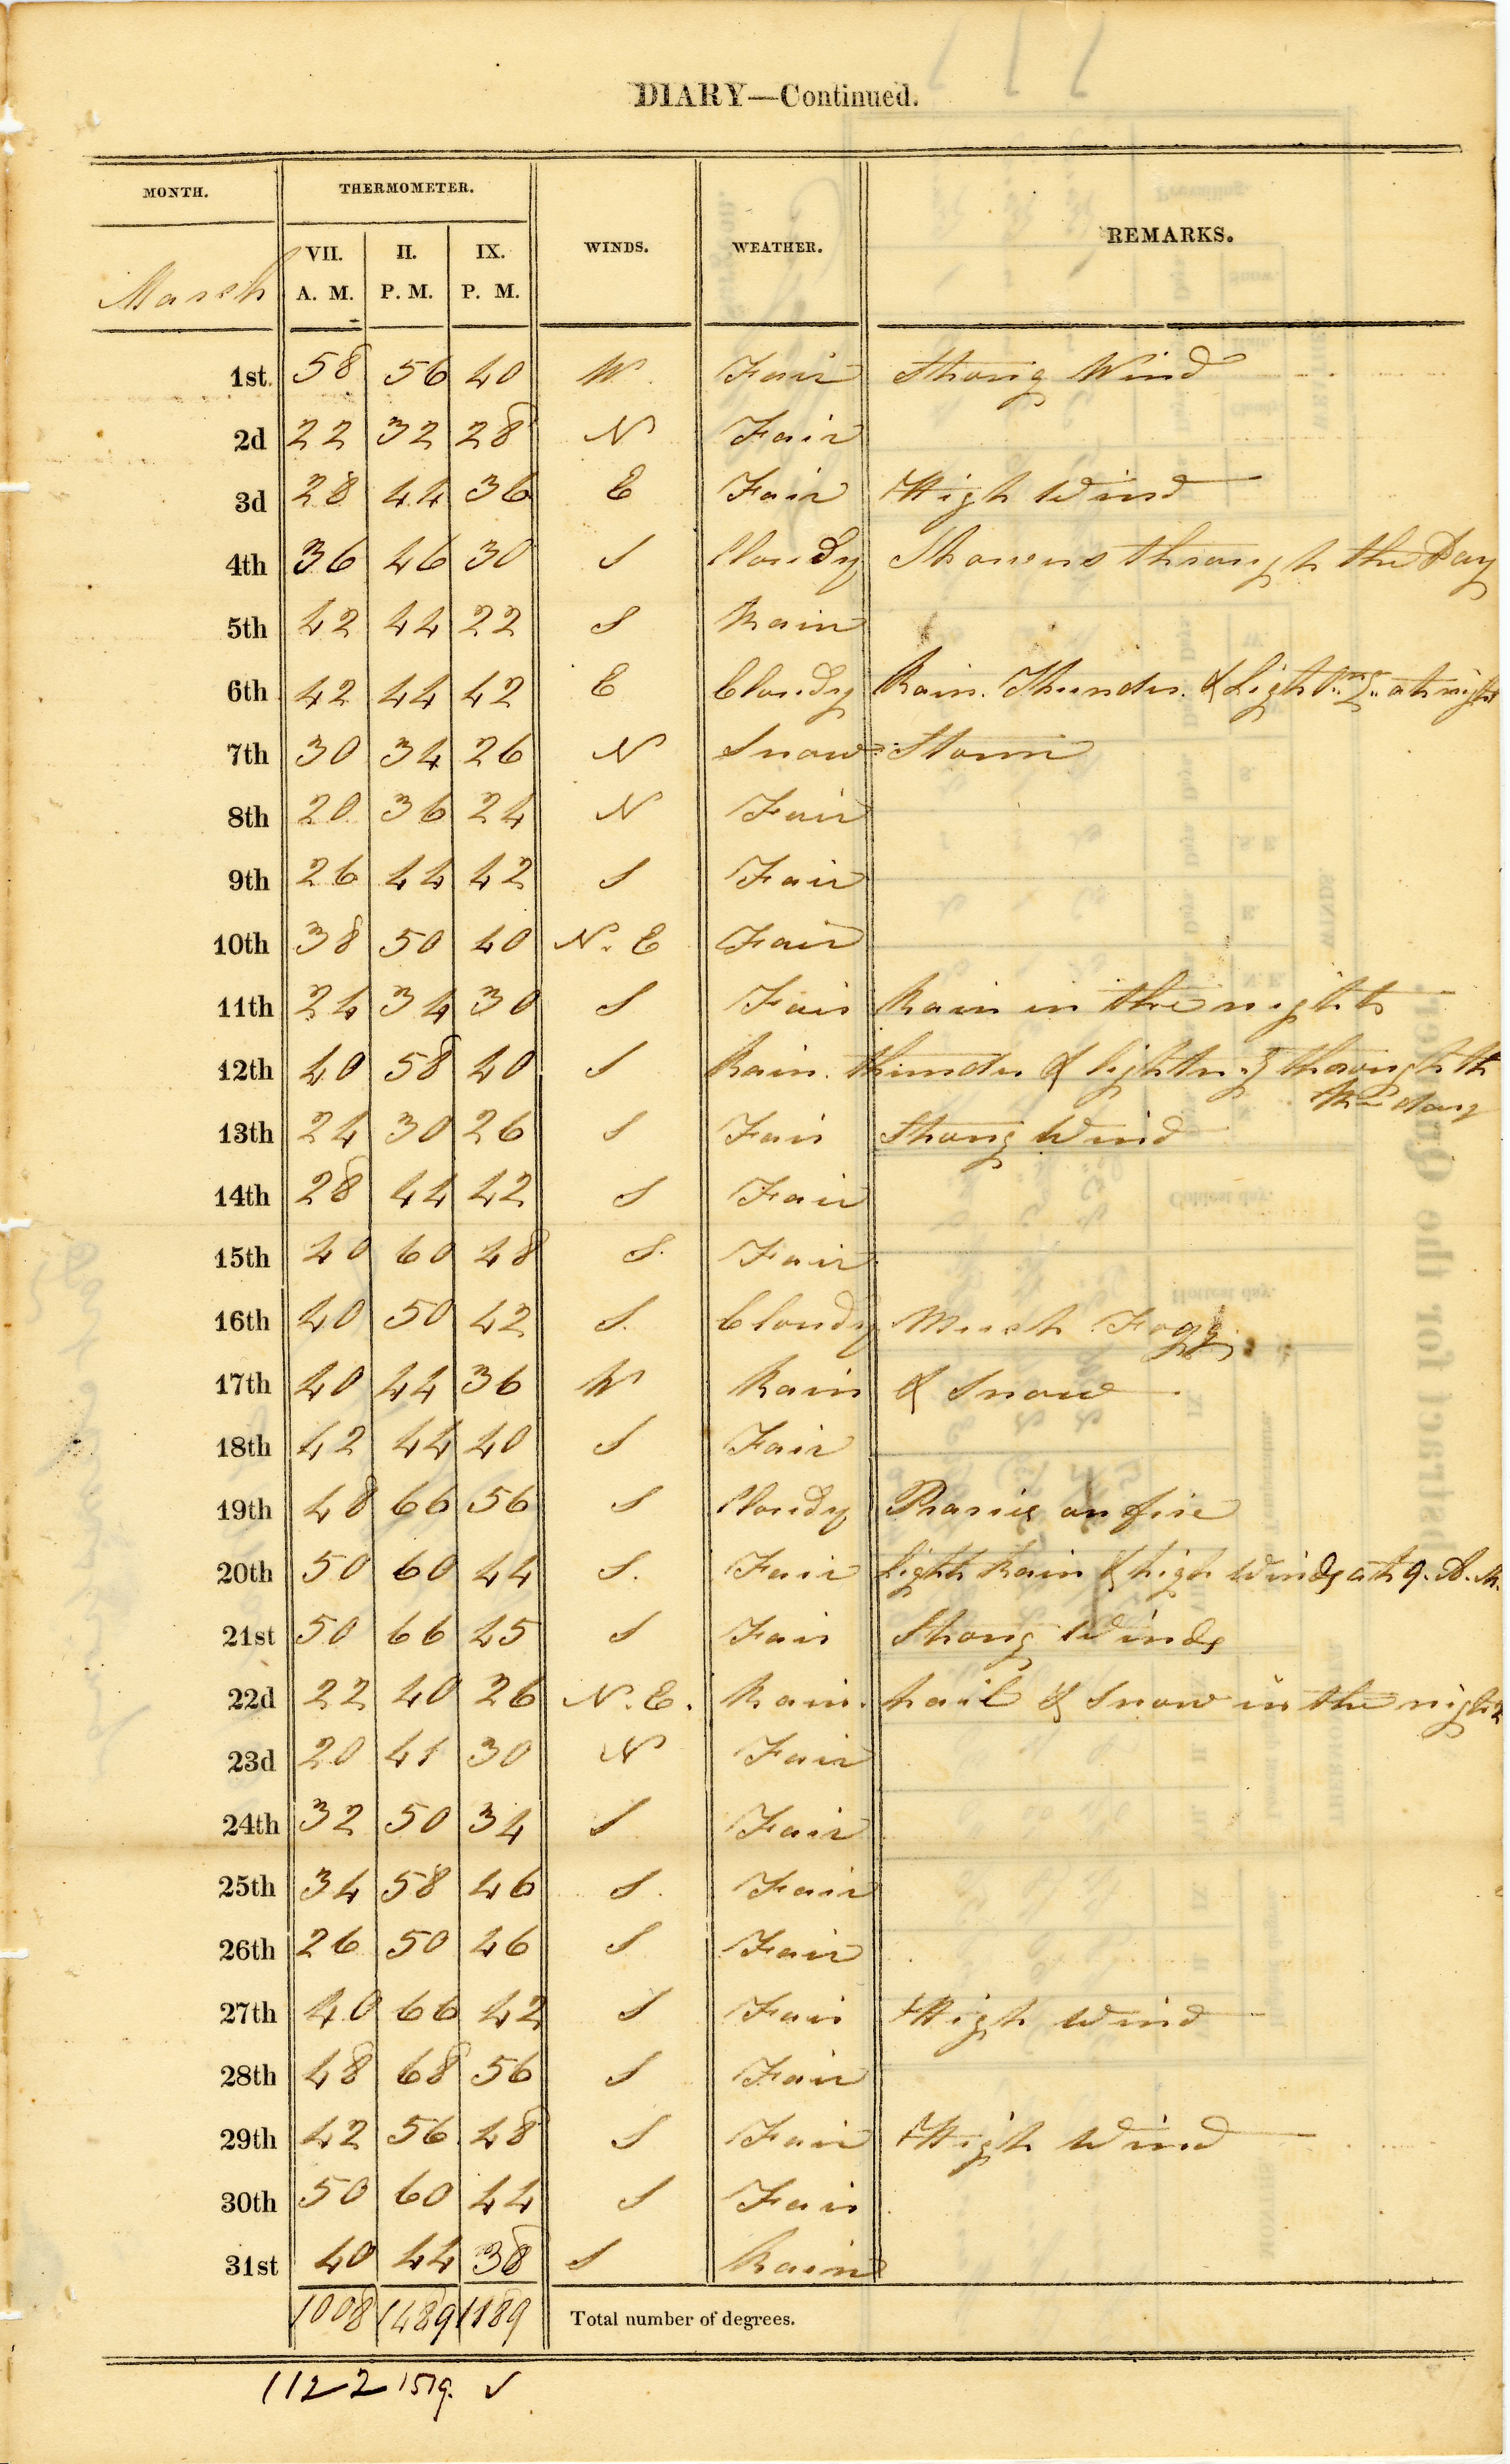 DIARY—Continued.
MONTH. THERMOMETER. WINDS. WEATHER. REMARKS.
March VII. A. M. II. P. M. IX. P. M.
1st. 58 56 40 W. Fair Strong Wind
2d 22 32 28 N Fair
3d 28 44 36 E Fair High Wind
4th 36 46 30 S Cloudy Showers through the Day
5th 42 44 22 S Rain
6th 42 44 42 E Cloudy Rain. Thunder. & Light.ng. at night
7th 30 34 26 N Snow = Storm
8th 20 36 24 N Fair
9th 26 44 42 S Fair
10th 38 50 40 N. E Fair
11th 24 34 30 S Fair Rain in the night
12th 40 58 40 S Rain. thunder & lightng through th
the day
13th 24 30 26 S Fair Strong Wind
14th 28 44 42 S Fair
15th 40 60 48 S. Fair
16th 40 50 42 S. Cloudy Much Fogg.
17th 40 44 36 W Rain & Snow
18th 42 44 40 S Fair
19th 48 66 56 S Cloudy Prarie on fire
20th 50 60 44 S. Fair light Rain & high Winds at 9. A. M.
21st 50 66 45 S Fair Strong Winds
22d 22 40 26 N. E. Rain. hail & Snow in the night
23d 20 41 30 N Fair
24th 32 50 34 S Fair
25th 34 58 46 S. Fair
26th 26 50 46 S Fair
27th 40 66 42 S Fair High Wind
28th 48 68 56 S Fair
29th 42 56 48 S Fair High Wind
30th 50 60 44 S Fair
31st 40 44 38 S Rain
1008 1489 1189 Total number of degrees.
1122 1519. ✓